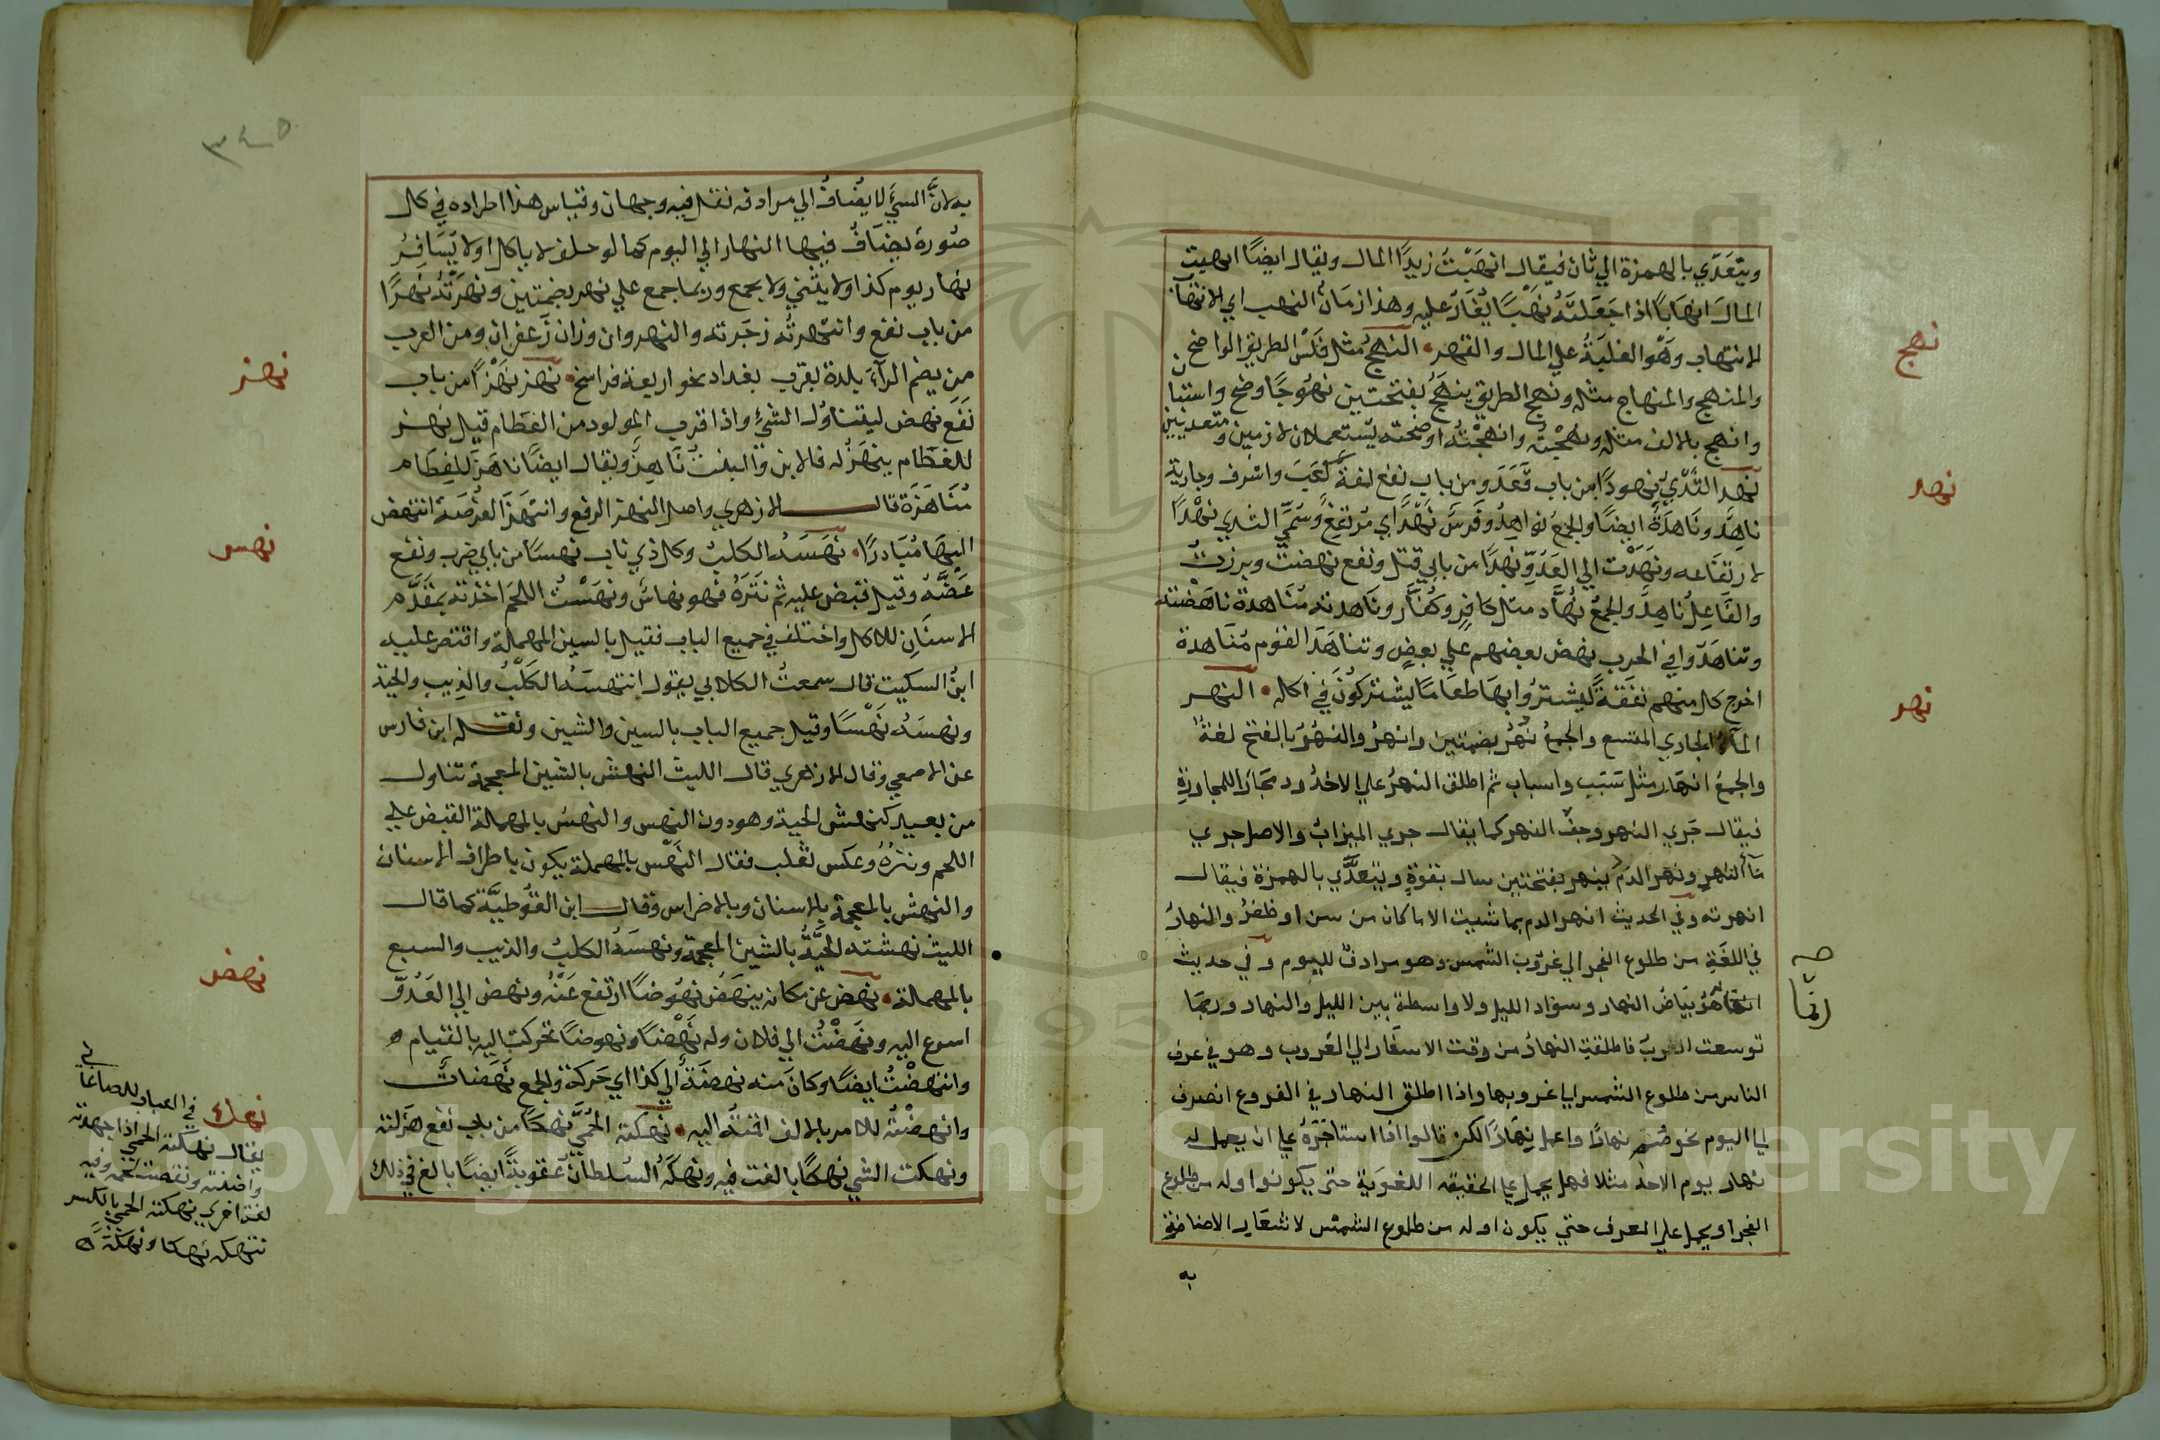 ويتعدي بالهمزة الي ثان فيقال انهبت زيدا المال ويقال ايضا انهبت
المال انهابا اذا جعلته نهبا يغار عليه وهذا زمان النهب اي الانتهاب
الانتهاب وهو الغلبة علي المال والقهر • النهج مثل فلس الطريق الواضح
والمنهج والمنهاج مثله ونهج الطريق ينهج بفتحتين نهوجا وضح واستبان
وانهج بالالف مثله ونهجته وانهجته اوضحته يستعملان لازمين ومتعديين
نهد الثدي نهودا من باب قعد ومن باب نفع لغة كعب واشرف وجارية
ناهد وناهدة ايضا والجمع نواهد وفرس نهد اي مرتفع وسمي الثدي نهدا
لارتفاعه ونهدت الي العدو نهدا من بابي قتل ونفع نهضت وبرزت
والفاعل ناهد والجمع نهاد مثل كافر وكفار وناهدته مناهدة ناهضته
وتناهدوا في الحرب نهض بعضهم علي بعض وتناهد القوم مناهدة
اخرج كل منهم نفقة ليشتروا بها طعاما يشتركون في اكله • النهر
الماء الجاري المتسع والجمع نهر بضمتين وانهر والنهر بالفتح لغة
والجمع انهار مثل سبب واسباب ثم اطلق النهر علي الاخدود مجازا للمجاورة
فيقال جري النهر وجف النهر كما يقال جري الميزاب والاصل جري
ماء النهر ونهر الدم ينهر بفتحتين سال بقوة ويتعدي بالهمزة فيقال
انهرته وفي الحديث انهر الدم بما شيت الا ما كان من سن او ظفر والنهار
في اللغة من طلوع الفجر الي غروب الشمس وهو مرادف لليوم وفي حديث
انما هو بياض النهار وسواد الليل ولا واسطة بين الليل والنهار وربما
توسعت العرب فاطلقت النهار من وقت الاسفار الي الغروب وهو في عرف
الناس من طلوع الشمس الي غروبها واذا اطلق النهار في الفروع انصرف
الي اليوم نحو صم نهارا واعمل نهارا لكن قالوا اذا استاجره علي ان يعمل له
نهار يوم الاحد مثلا فهل يحمل علي الحقيقة اللغوية حتي يكون اوله من طلوع
الفجر او يحمل علي العرف حتي يكون اوله من طلوع الشمس لاشعار الاضافة
به
نهج
نهد
نهر
صح
انما
٣٤٥
به لان الشيء لا يضاف الي مرادفه نقل فيه وجهان وقياس هذا اطراده في كل
صورة يضاف فيها النهار الي اليوم كما لو حلف لا ياكل او لا يسافر
نهار يوم كذا ولا يثني ولا يجمع وربما جمع علي نهر بضمتين ونهرته نهرا
من باب نفع وانتهرته زجرته والنهروان وزان زعفران ومن العرب
من يضم الراء بلدة بقرب بغداد نحو اربعة فراسخ • نهز نهزا من باب
نفع نهض ليتناول الشيء واذا قرب المولود من الفطام قيل نهز
للفطام ينهز له فالابن والبنت ناهز ويقال ايضا ناهز للفطام
مناهزة قال الازهري واصل النهز الدفع وانتهز الفرصة انتهض
اليها مبادرا • نهسه الكلب وكل ذي ناب نهسا من بابي ضرب ونفع
عضه وقيل قبض عليه ثم نتره فهو نهاس ونهست اللحم اخذته بمقدم
الاسنان للاكل واختلف في جميع الباب فقيل بالسين المهملة واقتصر عليه
ابن السكيت قال سمعت الكلابي يقول انتهسه الكلب والذيب والحية
ونهسه نهسا وقيل جميع الباب بالسين والشين ونقله ابن فارس
عن الاصمعي وقال الازهري قال الليث النهش بالشين المعجمة تناول
من بعيد كنهش الحية وهو دون النهس والنهس بالمهملة القبض علي
اللحم ونتره وعكس ثعلب فقال النهس بالمهملة يكون باطراف الاسنان
والنهش بالمعجمة بالاسنان وبالاضراس وقال ابن القوطية كما قال
الليث نهشته الحية بالشين المعجمة ونهسه الكلب والذيب والسبع
بالمهملة • نهض عن مكانه ينهض نهوضا ارتفع عنه ونهض الي العدو
اسرع اليه ونهضت الي فلان وله نهضا ونهوضا تحركت اليه بالقيام
وانتهضت ايضا وكان منه نهضة الي كذا اي حركة والجمع نهضات
وانهضته للامر بالالف اقمته اليه • نهكته الحمي نهكا من باب نفع هزلته
ونهكت الشي نهكا بالغت فيه ونهكه السلطان عقوبة ايضا بالغ في ذلك
نهز
نهس
نهض
نهك
في العباب للصاغاني
يقال نهكته الحمي اذا جهدته
واضنته ونقصت لحمه وفيه
لغة اخري نهكته الحمي بالكسر
تنهكه نهكا ونهكة
Copyright © King Saud University
1957